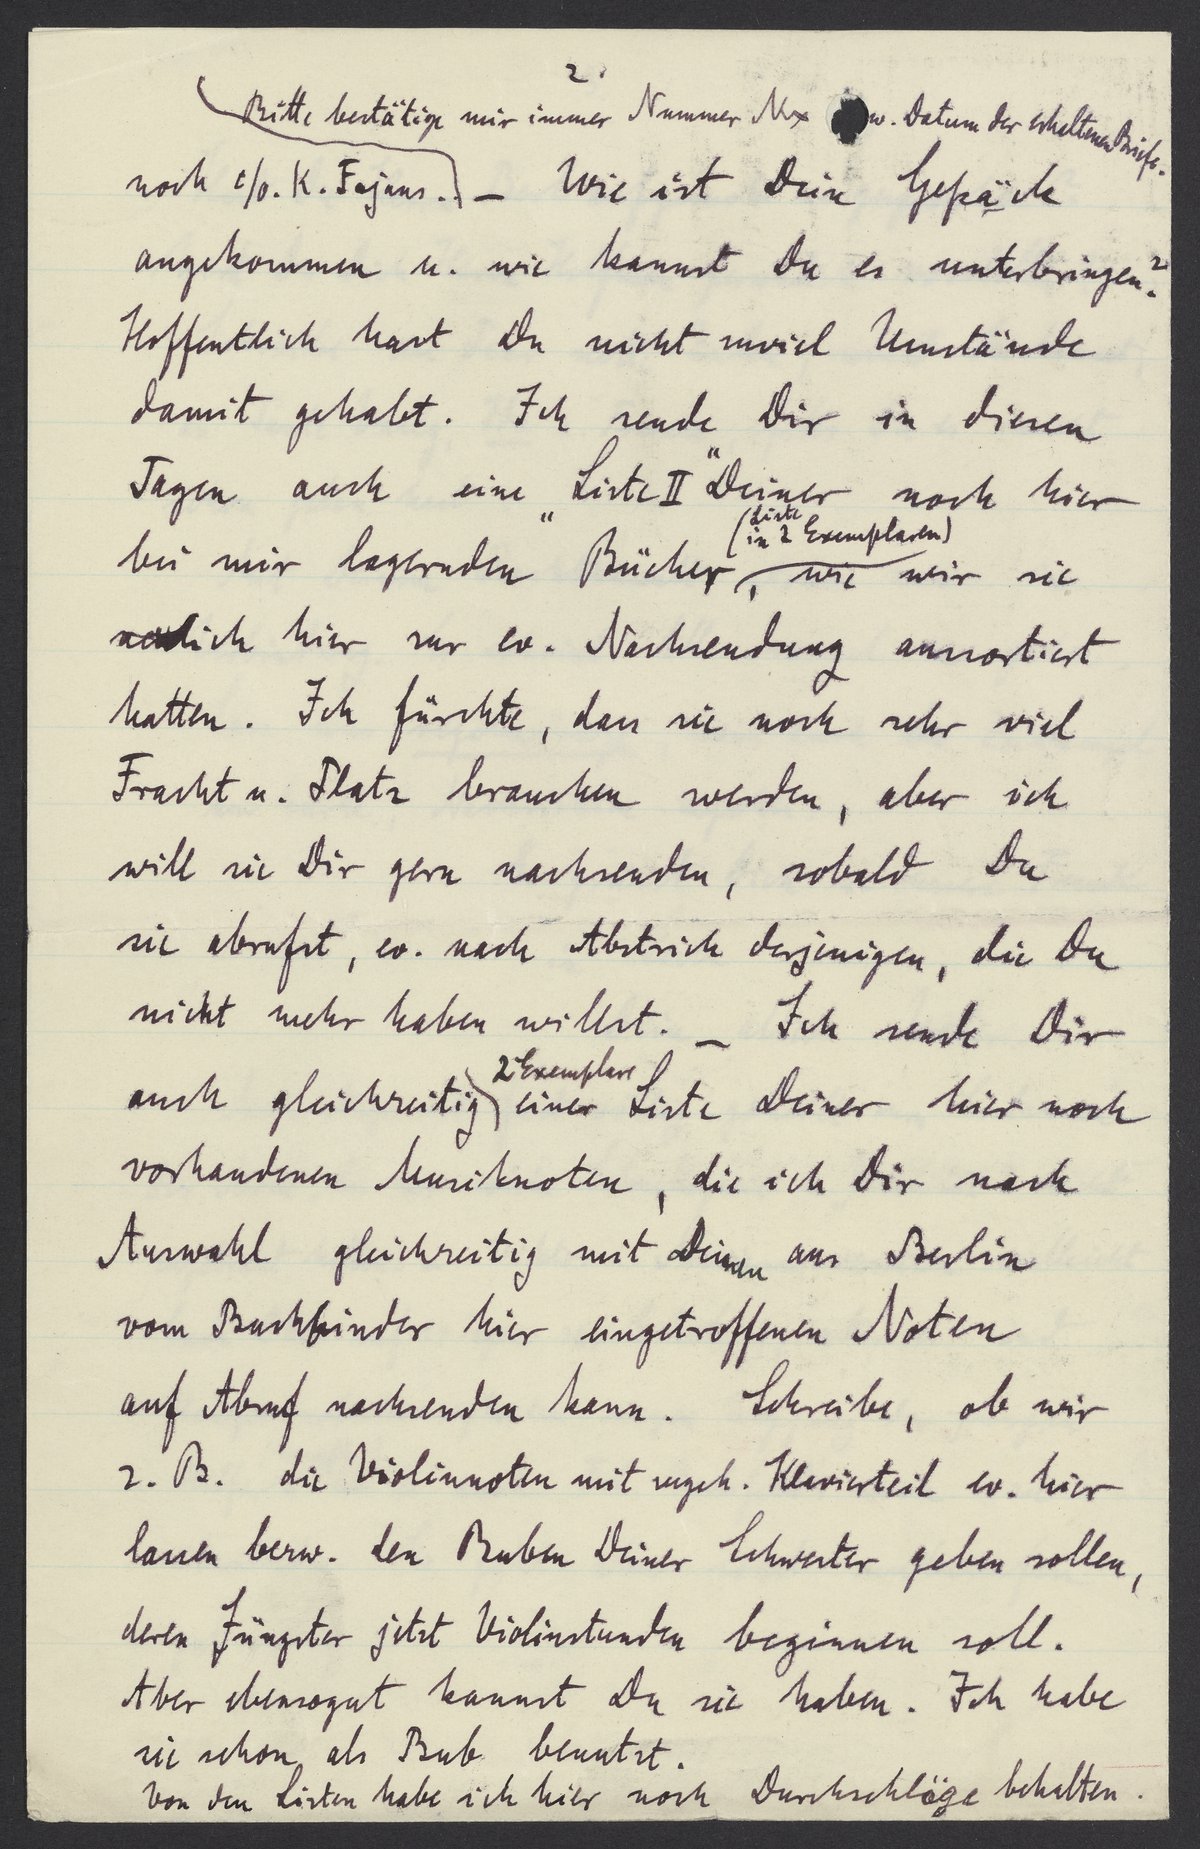 2.
Bitte bestätige mir immer Nummer w. Datum der erhaltenen Briefe.
noch c/o. K. Fajans. – Wie ist Dein Gepäck
angekommen u. wie kannst Du es unterbringen?
Hoffentlich hast Du nicht zuviel Umstände
damit gehabt. Ich sende Dir in diesen
Tagen auch eine „Liste II" Deiner noch hier
(Liste in 2 Exemplaren)
bei mir lagernden Bücher, wie wir sie
hier zur ev. Nachsendung aussortiert
hatten. Ich fürchte, dass sie noch sehr viel
Fracht u. Platz brauchen werden, aber ich
will sie Dir gern nachsenden, sobald Du
sie abrufst, ev. nach Abstrich derjenigen, die Du
nicht mehr haben willst. – Ich sende Dir
2 Exemplare
auch gleichzeitig einer Liste Deiner hier noch
vorhandenen Musiknoten, die ich Dir nach
Auswahl gleichzeitig mit Deinen aus Berlin
vom Buchbinder hier eingetroffenen Noten
auf Abruf nachsenden kann. Schreibe, ob wir
z. B. die Violinnoten mit zugeh. Klavierteil ev. hier
lassen bezw. den Buben Deiner Schwester geben sollen,
deren Jüngster jetzt Violinstunden beginnen soll.
Aber ebensogut kannst Du sie haben. Ich habe
sie schon als Bub benutzt.
Von den Listen habe ich hier noch Durchschläge behalten.